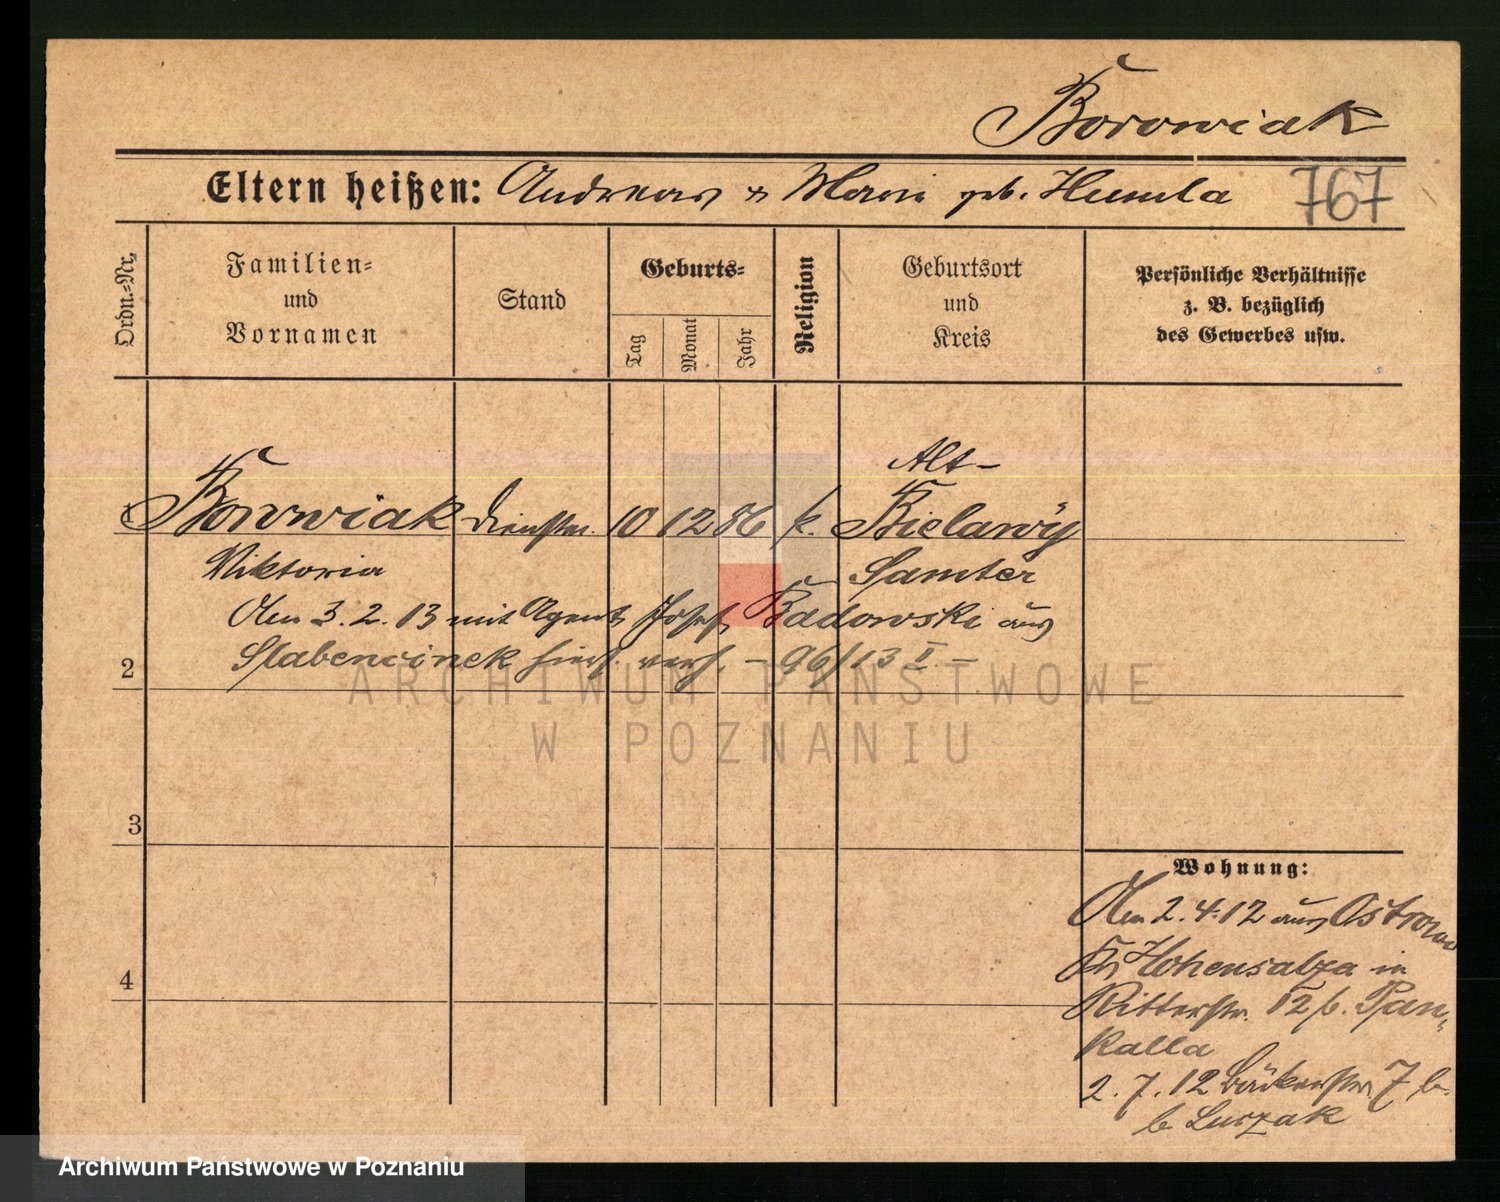 Borowiak
Eltern heißen: Andreas & Marie geb. Humla
767
Ordn.-Nr.
Familien-
und
Vornamen
Stand
Geburts-
Tag
Monat
Jahr
Religion
Geburtsort
und
Kreis
Persönliche Verhältnisse
z. B. bezüglich
des Gewerbes usw.
Alt-
Borowiak Dienstm. 10 12 86 k. Bielawy
Viktoria Samter
Am 3.2.13 mit Agent Josef Badowski aus
2 Slabencinek hier verh. - 96/13 I. -
3
4
Wohnung:
Am 2.4.12 aus Ostrowo
Kr Hohensalza in
Ritterstr. 12 b. Pan-
kalla
2.7.12 Bäckerstr. 7 b.
b Luczak
ARCHIWUM PAŃSTWOWE
W POZNANIU
Archiwum Państwowe w Poznaniu